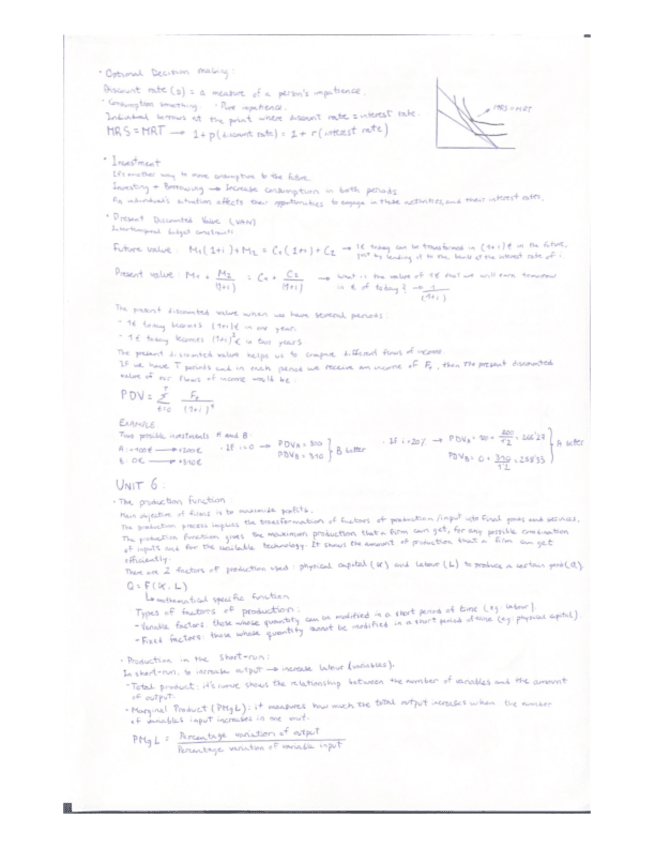 · Optimal Decision making:
Discount rate (ρ) = a measure of a person's impatience.
· Consumption smoothing. · Pure impatience.
Individual borrows at the point where discount rate = interest rate.
MRS = MRT → 1+ρ (discount rate) = 1 + r (interest rate)
MRS = MRT
· Investment
It's another way to move consumption to the future.
Investing + Borrowing → Increase consumption in both periods
An individual's situation affects their opportunities to engage in these activities, and their interest rates.
· Present Discounted Value (VAN)
Intertemporal budget constraint:
Future value: M₁(1+i) + M₂ = C₁(1+i) + C₂ → 1€ today can be transformed in (1+i)€ in the future,
just by lending it to the bank at the interest rate of i
Present value: M₁ + M₂/(1+i) = C₁ + C₂/(1+i) → What is the value of 1€ that we will earn tomorrow
in € of today? → 1/(1+i)
The present discounted value when we have several periods:
- 1€ today becomes (1+i)€ in one year.
- 1€ today becomes (1+i)²€ in two years
The present discounted value helps us to compare different flows of income.
If we have T periods and in each period we receive an income of Fₜ, then the present discounted
value of our flows of income would be:
PDV = Σ Fₜ/(1+i)ᵗ
EXAMPLE
Two possible investments A and B
· If i=0 → PDVA = 300
PDVB = 310 } B better
· If i=20%
A better
UNIT 6:
· The production function
Main objective of firms is to maximize profits.
The production process implies the transformation of factors of production/input into final goods and services.
The production function gives the maximum production that a firm can get, for any possible combination
of inputs and for the available technology. It shows the amount of production that a firm can get
efficiently.
There are 2 factors of production used: physical capital (K) and labour (L) to produce a certain good (Q).
Q = F(K, L)
↳ mathematical specific function
Types of factors of production:
- Variable factors: those whose quantity can be modified in a short period of time (eg: labour).
- Fixed factors: those whose quantity cannot be modified in a short period of time (eg: physical capital).
· Production in the short-run:
In short-run, to increase output → increase labour (variables).
- Total product: it's curve shows the relationship between the number of variables and the amount
of output.
- Marginal Product (PMgL): it measures how much the total output increases when the number
of variables input increases in one unit.
PMgL = Percentage variation of output
Percentage variation of variable input